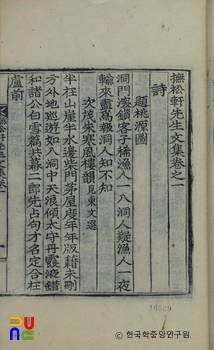 撫松軒先生文集卷之一
詩
題桃源圖
洞門深鎖客子稀漁人一入洞人疑漁人一夜
輪來盡萬報洞人知不知
次茂朱寒風樓韻 見東文選
半在山崖半水邊柴門茅屋度年年版籍未刪
方外地遨遊如入洞中天浪傾太守丹霞液錯
和諸公白雪篇共幕二郎先占句才名定合在
盧前
16829
한국학중앙연구원